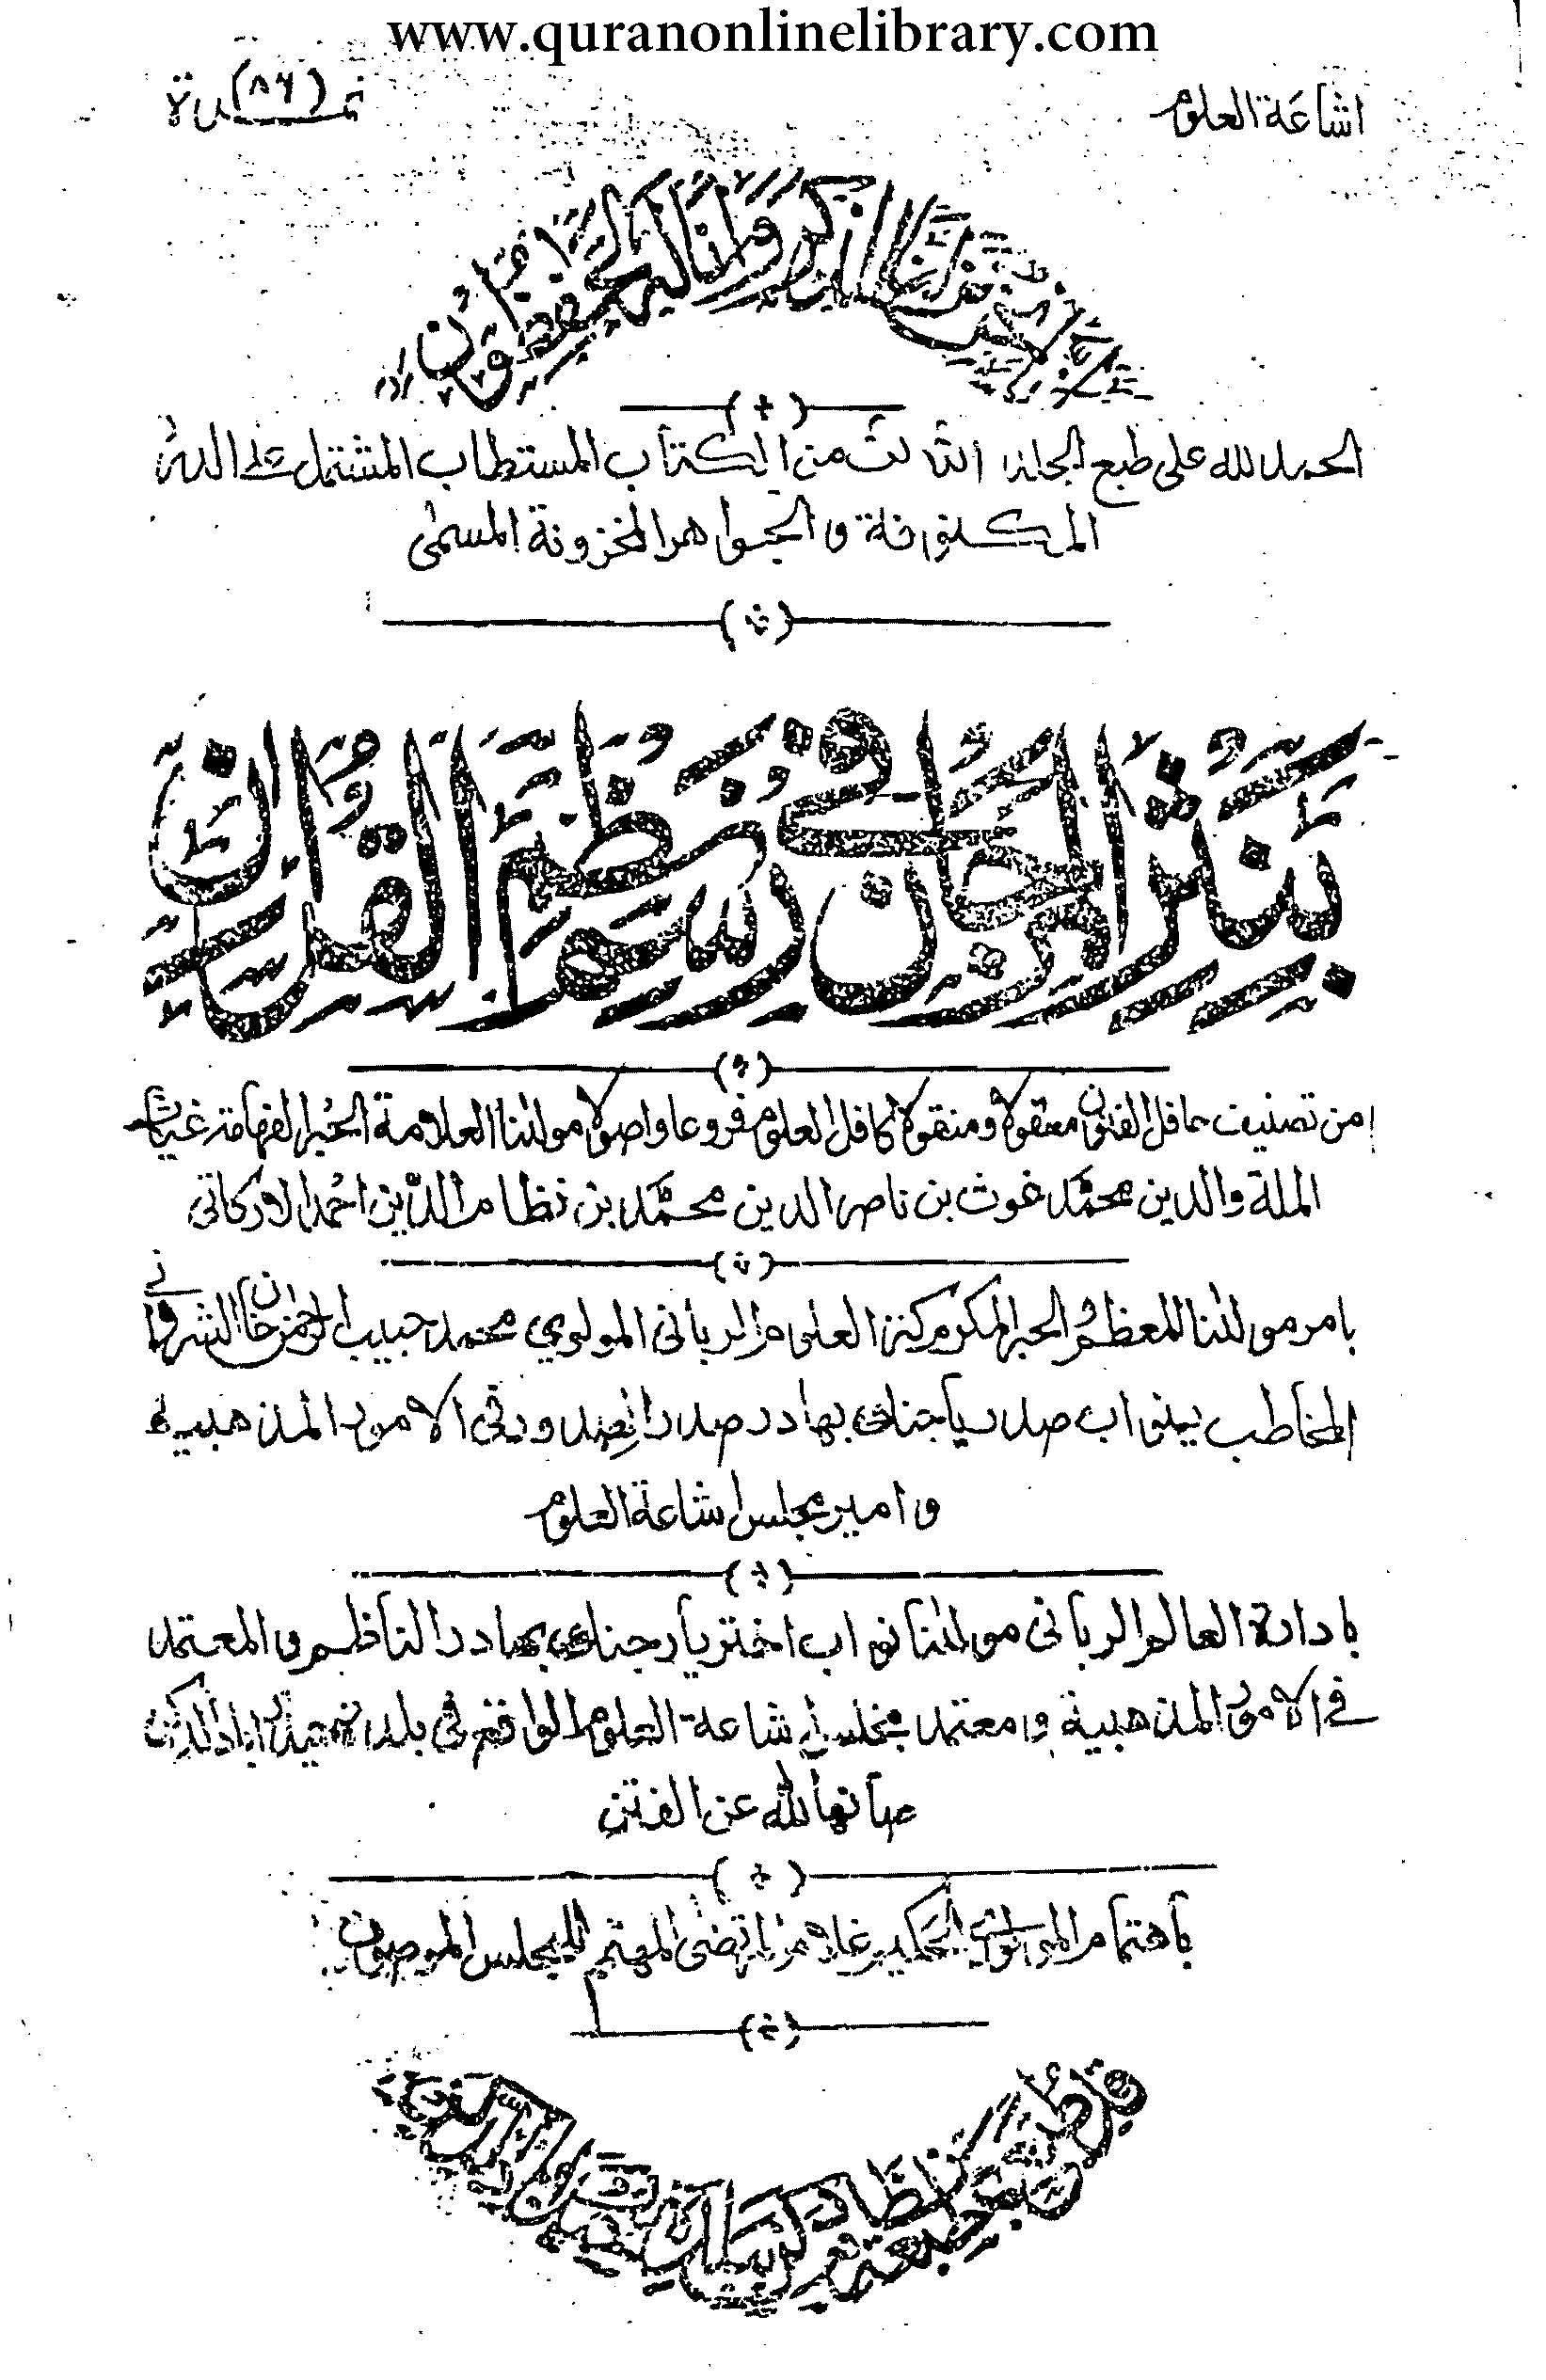 www.quranonlinelibrary.com
اشاعة العلوم
نمـ(٨٦)ـرة
نحن نزلنا الذكر وانا له لحفظون
الحمد لله على طبع الجلد الثالث من الكتاب المستطاب المشتمل على الدرر
المكنونة والجواهر المخزونة المسمى
بنثر المرجان في رسم نظم القران
من تصنيف حافل الفنون معقولا ومنقولا كافل العلوم فروعا واصولا مولٰنا العلامة الحبر الفهامة غياث
الملة والدين محمد غوث بن ناصر الدين محمد بن نظام الدين احمد الاركاتى
بامر مولٰنا المعظم والحبر المكرم كنز العلوم الربانى المولوي محمد حبيب الرحمن خان الشروانى
المخاطب بنواب صدر يار جنك بهادر صدر الصدور فى الامور المذهبية
و امير مجلس اشاعة العلوم
بادارة العالم الربانى مولٰنا نواب اختر يار جنك بهادر الناظم و المعتمد
فى الامور المذهبية و معتمد مجلس اشاعة العلوم الواقع فى بلدة حيدراباد الدكن
صانها الله عن الفتن
باهتمام المولوي الحكيم غلام مرتضى المهتم للمجلس الموصوف
قد طبع